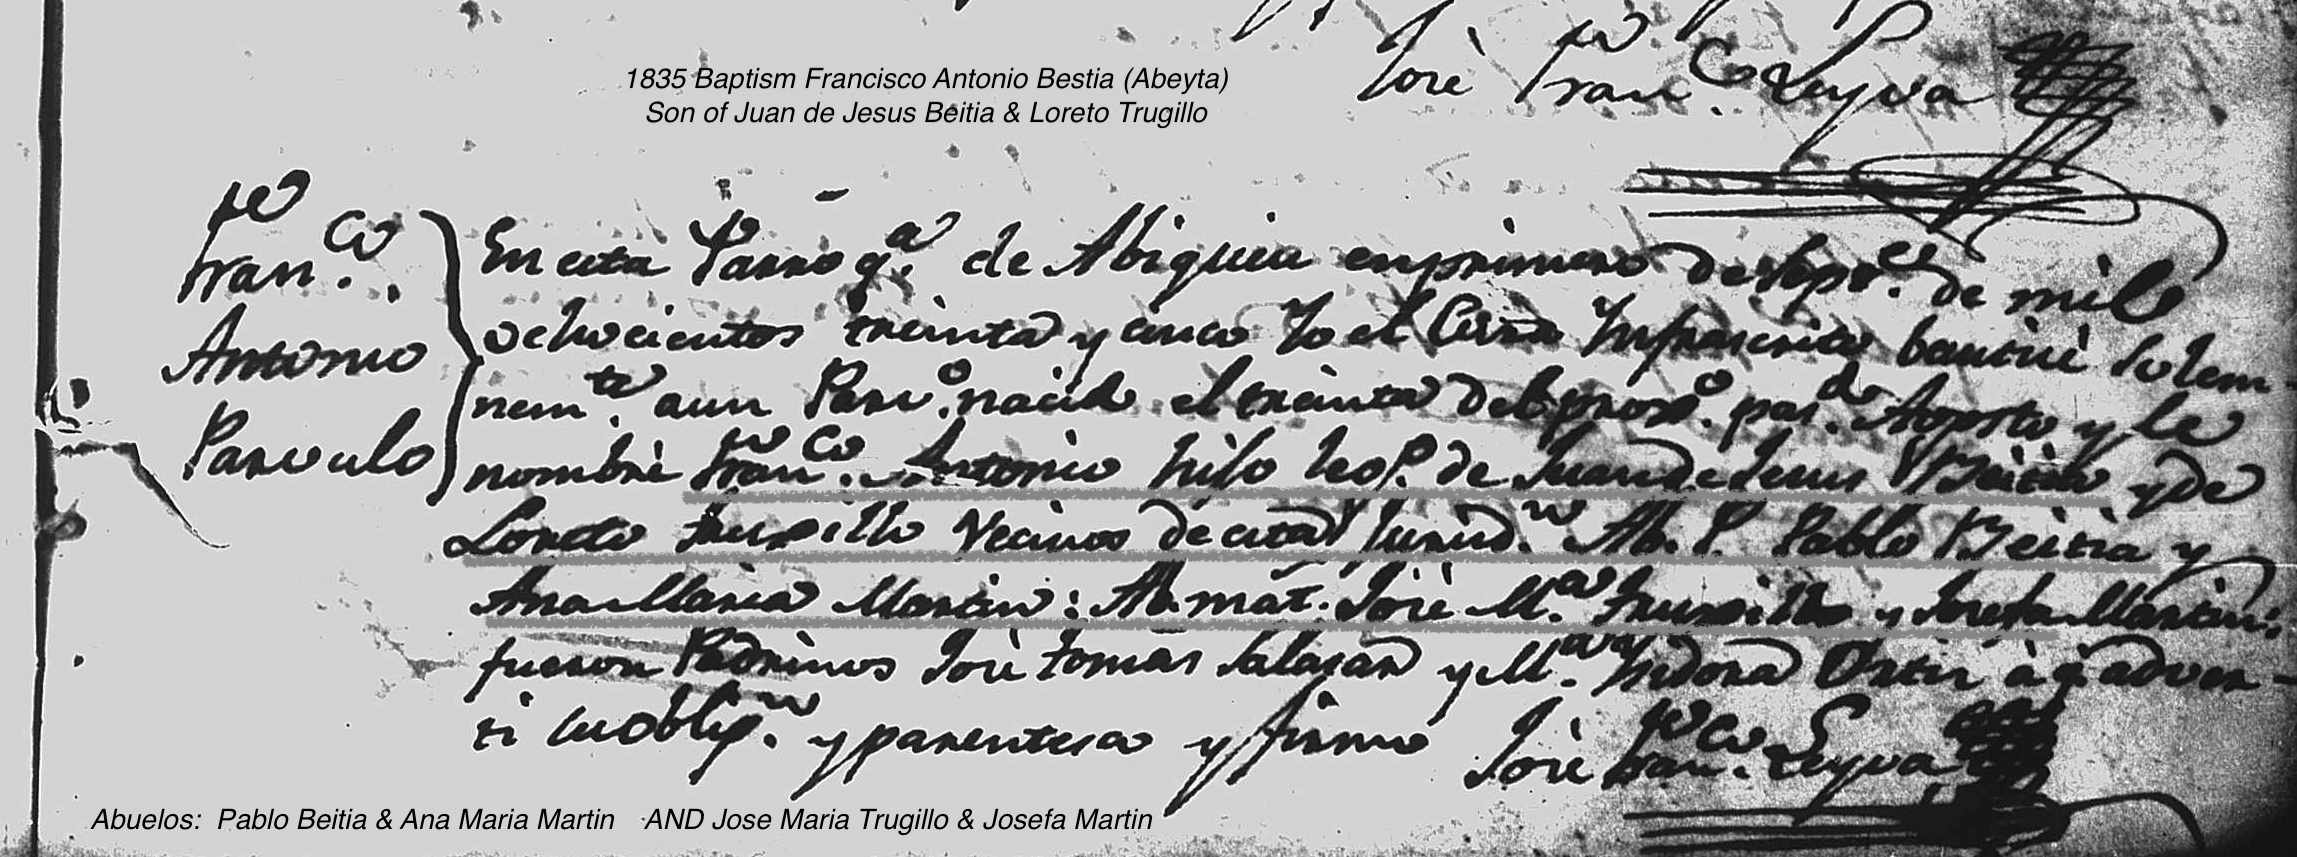 José Fran.co Leyva
1835 Baptism Francisco Antonio Bestia (Abeyta)
Son of Juan de Jesus Beitia & Loreto Trugillo
Fran.co
Antonio
Parvulo
En esta Parroq.a de Abiquiu en primero de Sepr.e de mil
ochocientos treinta y cinco Yo el Cura Infrascrito bautisé solem-
nem.te a un Parv.o nacido el treinta del prox.o pas.do Agosto y le
nombré Fran.co Antonio hijo leg.o de Juan de Jesus Beitia y de
Loreto Truxillo Vecinos de esta Jurisd.n Ab. P. Pablo Beitia y
Ana Maria Martin: Ab. mat. José M.a Truxillo y Josefa Martin:
fueron Padrinos José Tomas Salasar y M.a Ysidora Ortis à q. adver-
ti su oblig.n y parentesco y firmo José Fran.co Leyva
Abuelos: Pablo Beitia & Ana Maria Martin AND Jose Maria Trugillo & Josefa Martin